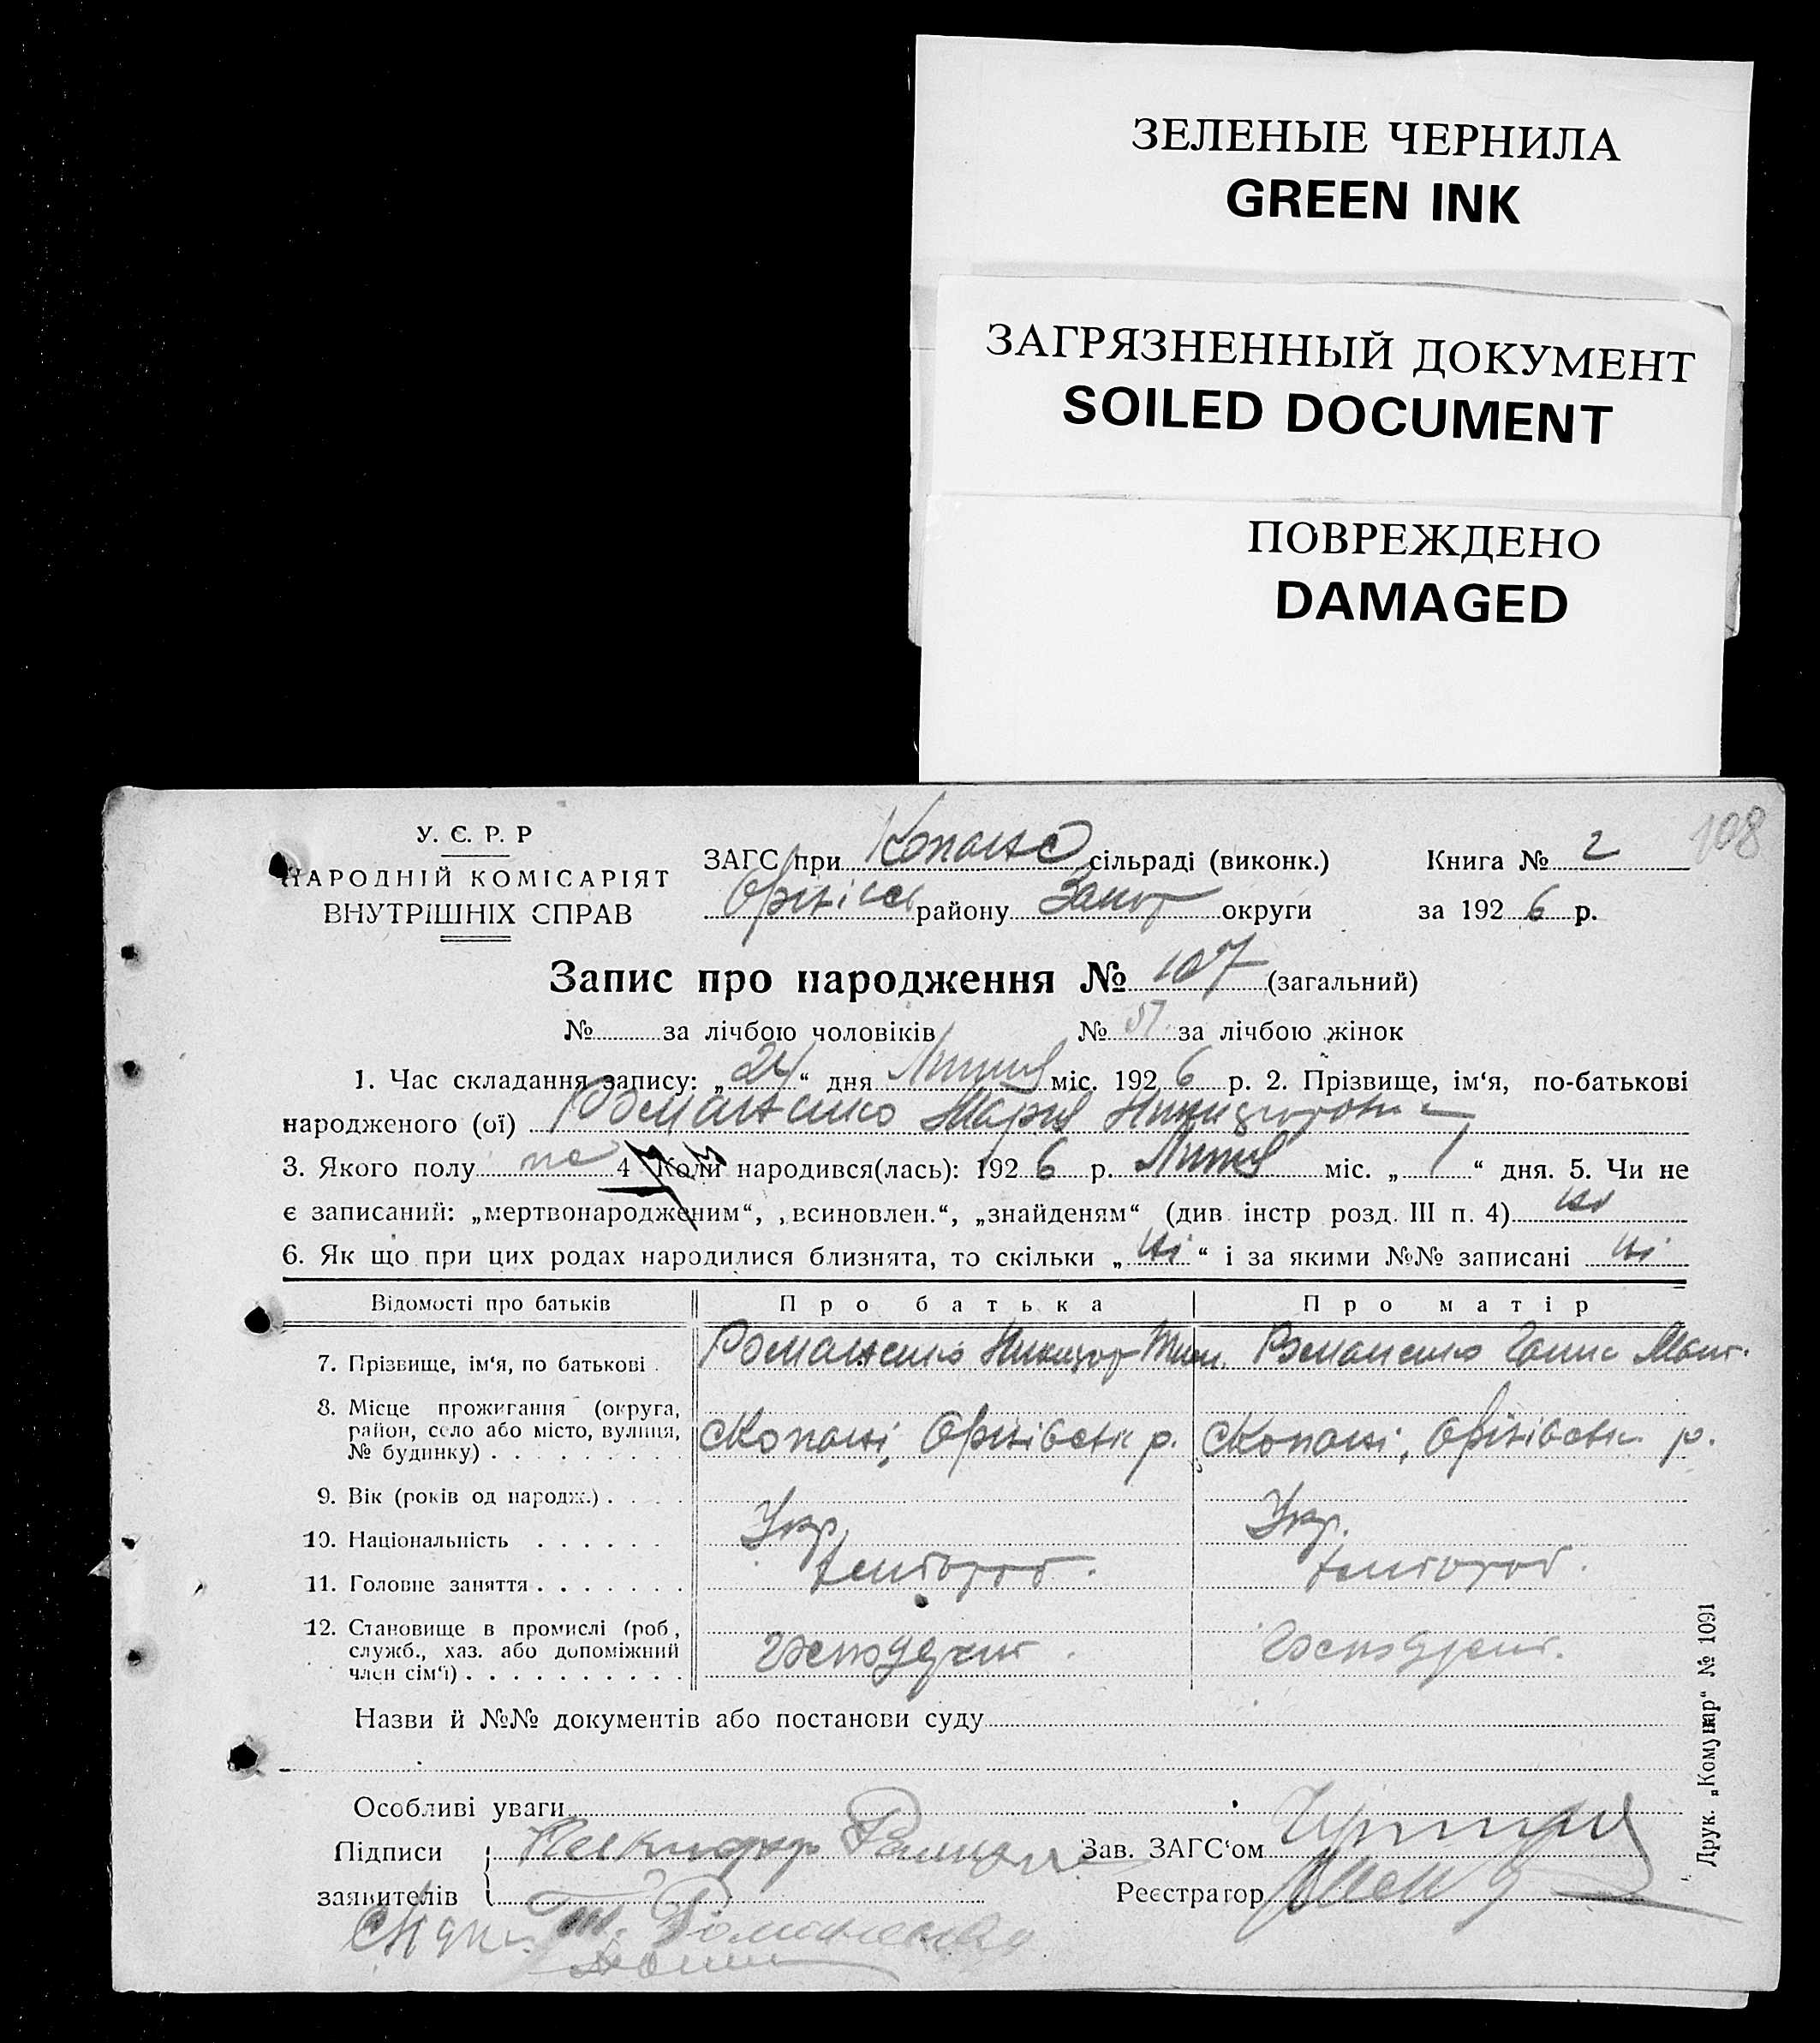 ЗЕЛЕНЫЕ ЧЕРНИЛА
GREEN INK
ЗАГРЯЗНЕННЫЙ ДОКУМЕНТ
SOILED DOCUMENT
ПОВРЕЖДЕНО
DAMAGED
108
У. Є. Р. Р
НАРОДНІЙ КОМІСАРІЯТ
ВНУТРІШНІХ СПРАВ
ЗАГС при сільраді (виконк.) Книга № 2
району Запор округи за 192 6 р.
Запис про народження № 107 (загальний)
№ за лічбою чоловіків № 51 за лічбою жінок
1. Час складання запису: „ 24 “ дня Липня міс. 192 6 р. 2. Прізвище, ім‘я, по-батькові
народженого (ої) Романенко Марія
3. Якого полу 4 Коли народився(лась): 192 6 р. Липня міс. „ 1 “ дня. 5. Чи не
є записаний: „мертвонародженим“, „всиновлен.“, „знайденям“ (див інстр розд. III п. 4) ні
6. Як що при цих родах народилися близнята, то скільки „ ні “ і за якими №№ записані ні
Відомості про батьків Про батька Про матір
7. Прізвище, ім‘я, по батькові Романенко Никифор Романенко Ганна
8. Місце прожигання (округа, район, село або місто, вулиця, № будинку) с Копані, Оріхівськ р. с Копані, Оріхівськ р.
9. Вік (років од народж.)
10. Національність Укр. Укр.
11. Головне заняття
12. Становище в промислі (роб, служб., хаз. або допоміжний член сім‘ї)
Назви й №№ документів або постанови суду
Особливі уваги
Підписи Никифор Зав. ЗАГС‘ом
заявителів Реєстратор
Т. Романенко
Друк. „Комунар“ № 1091